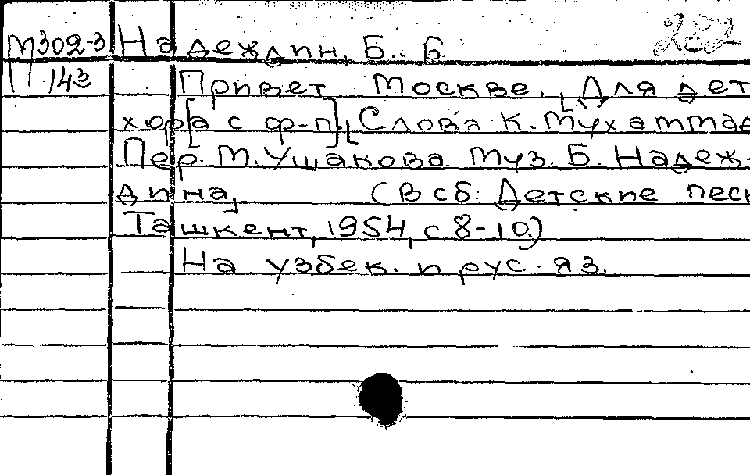 М302-3 Надеждин, Б. Б. 282
143 Привет Москве. [Для дет
хор[а с ф-п]. [Слова К. Мухаммад
Пер. М. Ушакова Муз. Б. Надеж-
дина, (В сб: Детские песн
Ташкент, 1954, с 8-10)
На узбек. и рус. яз.